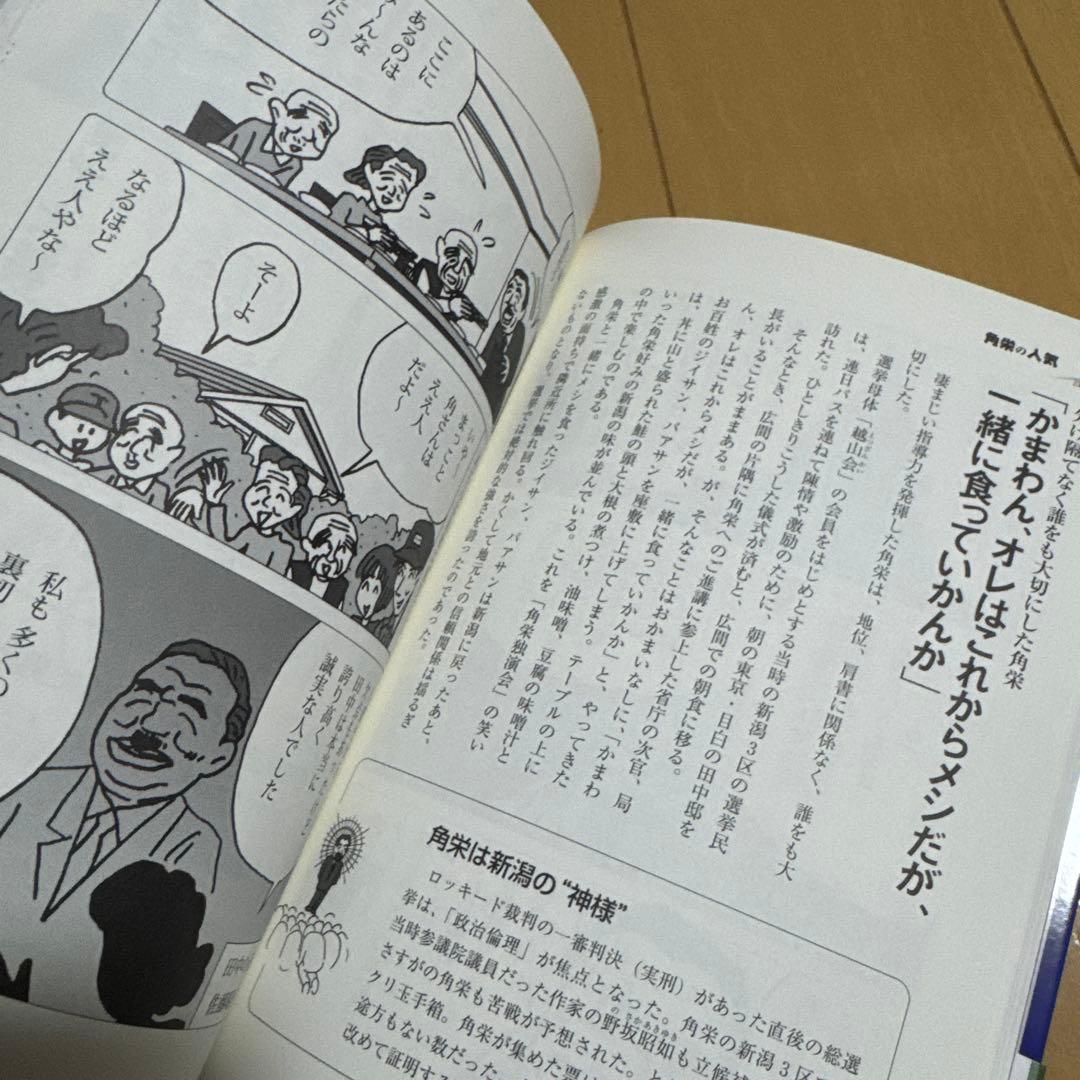 角栄の人気
分け隔てなく誰をも大切にした角栄
「かまわん、オレはこれからメシだが、
一緒に食っていかんか」
凄まじい指導力を発揮した角栄は、地位、肩書に関係なく、誰をも大
切にした。
選挙母体「越山会」の会員をはじめとする当時の新潟3区の選挙民
は、連日バスを連ねて陳情や激励のために、朝の東京・目白の田中邸を
訪れた。ひとしきりこうした儀式が済むと、広間での朝食に移る。
そんなとき、広間の片隅に角栄へのご進講に参上した省庁の次官、局
長がいることがままある。が、そんなことはおかまいなしに、「かまわ
ん、オレはこれからメシだが、一緒に食っていかんか」と、やってきた
お百姓のジイサン、バアサンを座敷に上げてしまう。テーブルの上に
は、丼に山と盛られた鮭の頭と大根の煮つけ、油味噌、豆腐の味噌汁と
いった角栄好みの新潟の味が並んでいる。これを「角栄独演会」の笑い
の中で楽しむのである。
角栄と一緒にメシを食ったジイサン、バアサンは新潟に戻ったあと、
感激の面持ちで隣近所に触れ回る。かくして地元との信頼関係は揺るぎ
ないものとなり、選挙では絶対的な強さを誇ったのであった。
角栄は新潟の“神様”
ロッキード裁判の一審判決（実刑）があった直後の総選
挙は、「政治倫理」が焦点となった。角栄の新潟3区
当時参議院議員だった作家の野坂昭如も立候補
さすがの角栄も苦戦が予想された。
クリ玉手箱。角栄が集めた票
途方もない数だった。
改めて証明する
ここに
あるのは
みーんな
たらの
いや〜
まっこと
角さんは
ええ人
だよ〜
そーよ
なるほど
ええ人やな〜
田中は本当に
誇り高く
誠実な人でした
私も多くの
裏切